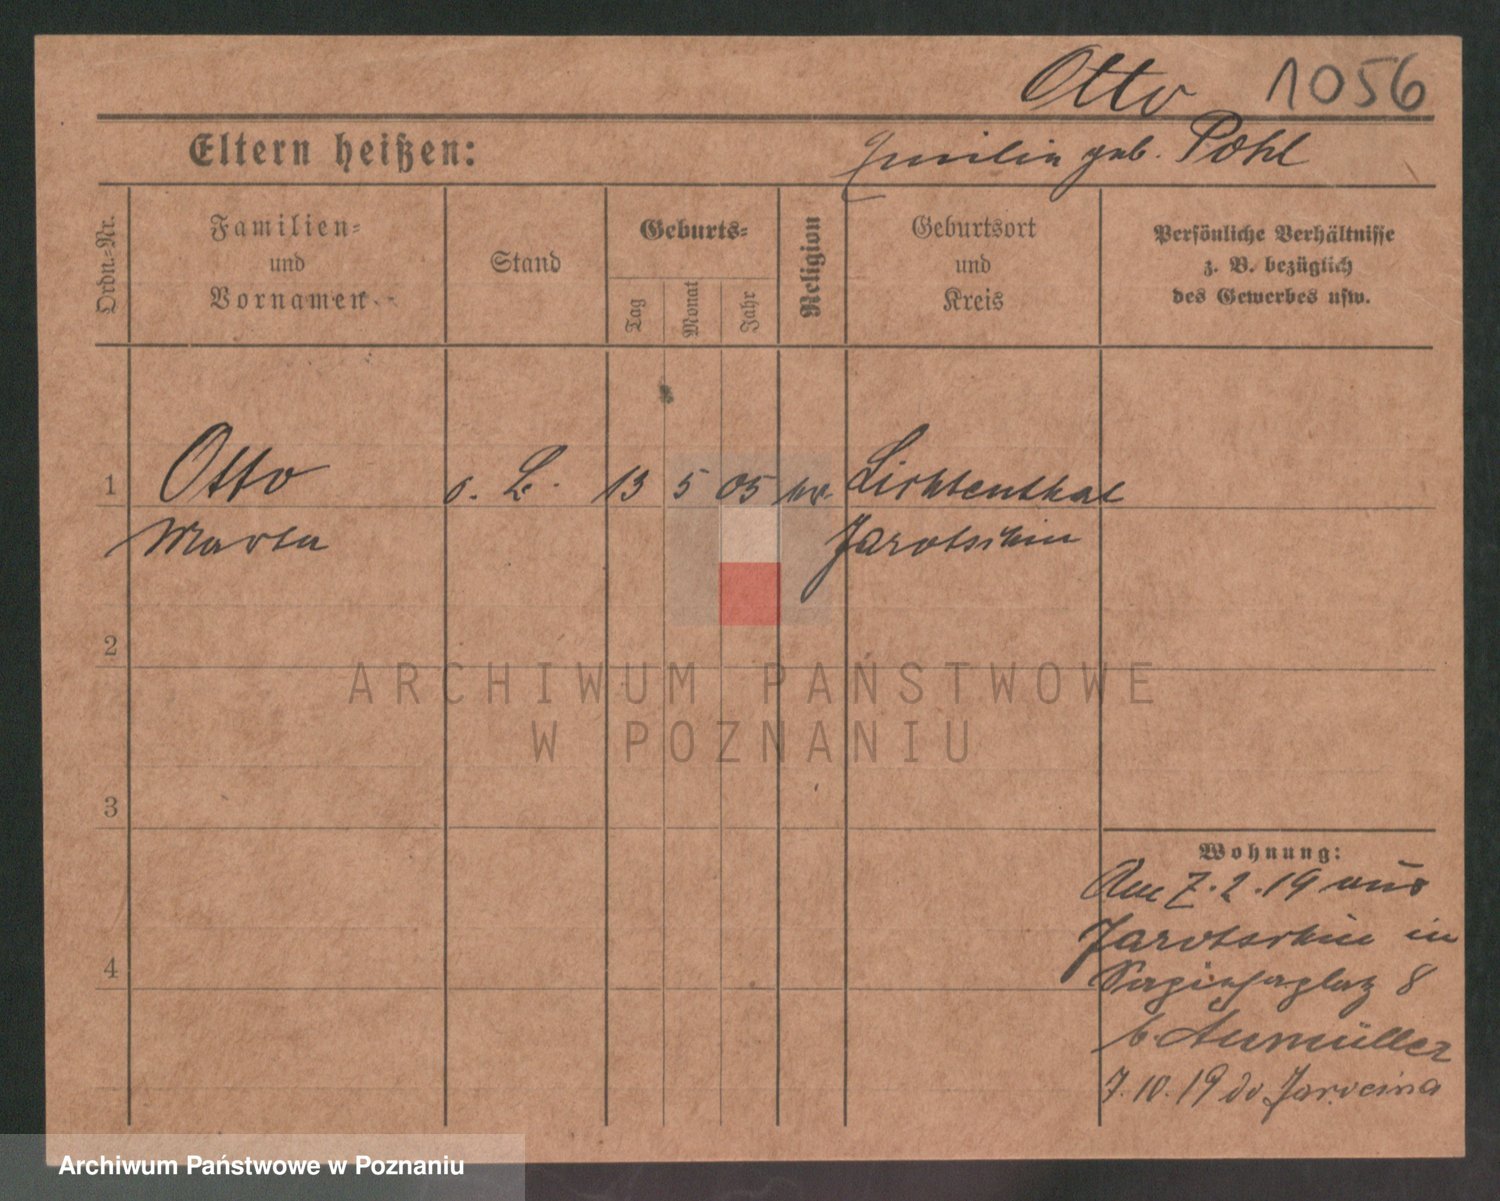 Otto 1056
Eltern heißen:
Emilie geb. Pohl
Ordn.-Nr.
Familien-
und
Vornamen
Stand
Geburts-
Tag
Monat
Jahr
Religion
Geburtsort
und
Kreis
Persönliche Verhältnisse
z. B. bezüglich
des Gewerbes usw.
1 Otto 13 5 05 Lichtenthal
Marta Jarotschin
2
3
4
ARCHIWUM PAŃSTWOWE
W POZNANIU
Wohnung:
Am 7.2.19 aus
Jarotschin in
Sapiehaplatz 8
b. Aumüller
7.10.19 do Jarocina
Archiwum Państwowe w Poznaniu